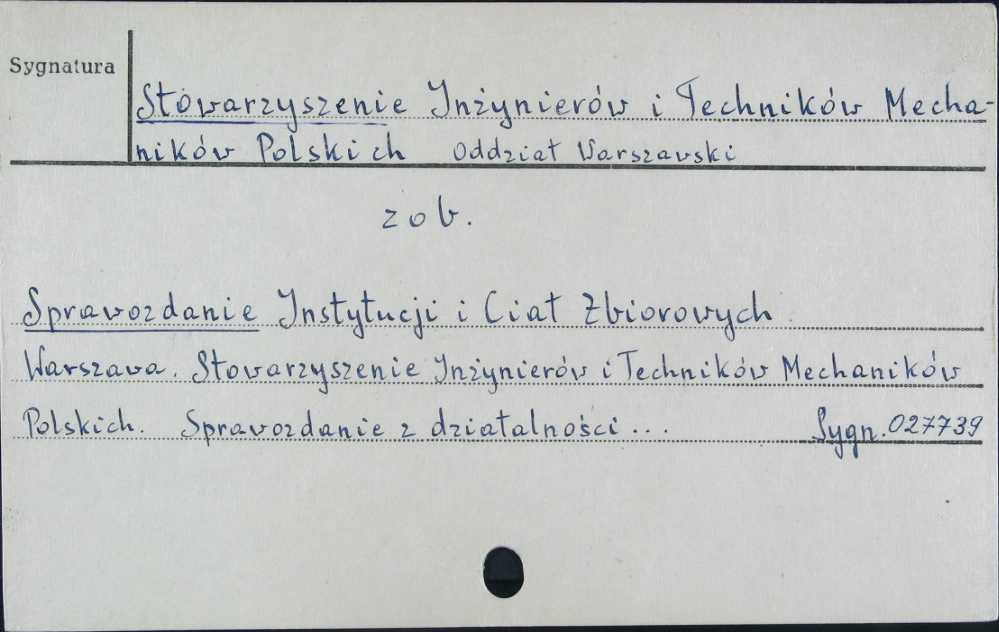 Sygnatura
Stowarzyszenie Inżynierów i Techników Mecha-
ników Polskich Oddział Warszawski
zob.
Sprawozdanie Instytucji i Ciał Zbiorowych
Warszawa. Stowarzyszenie Inżynierów i Techników Mechaników
Polskich. Sprawozdanie z działalności... Sygn. 027739